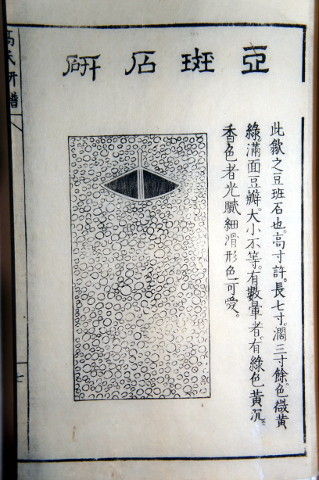 豆斑石研
此歙之豆班石也高寸許長七寸濶三寸餘色微黄
綠滿面豆瓣大小不等有數暈者有綠色黄沉
香色者光膩細滑形色可愛
高氏研譜
七